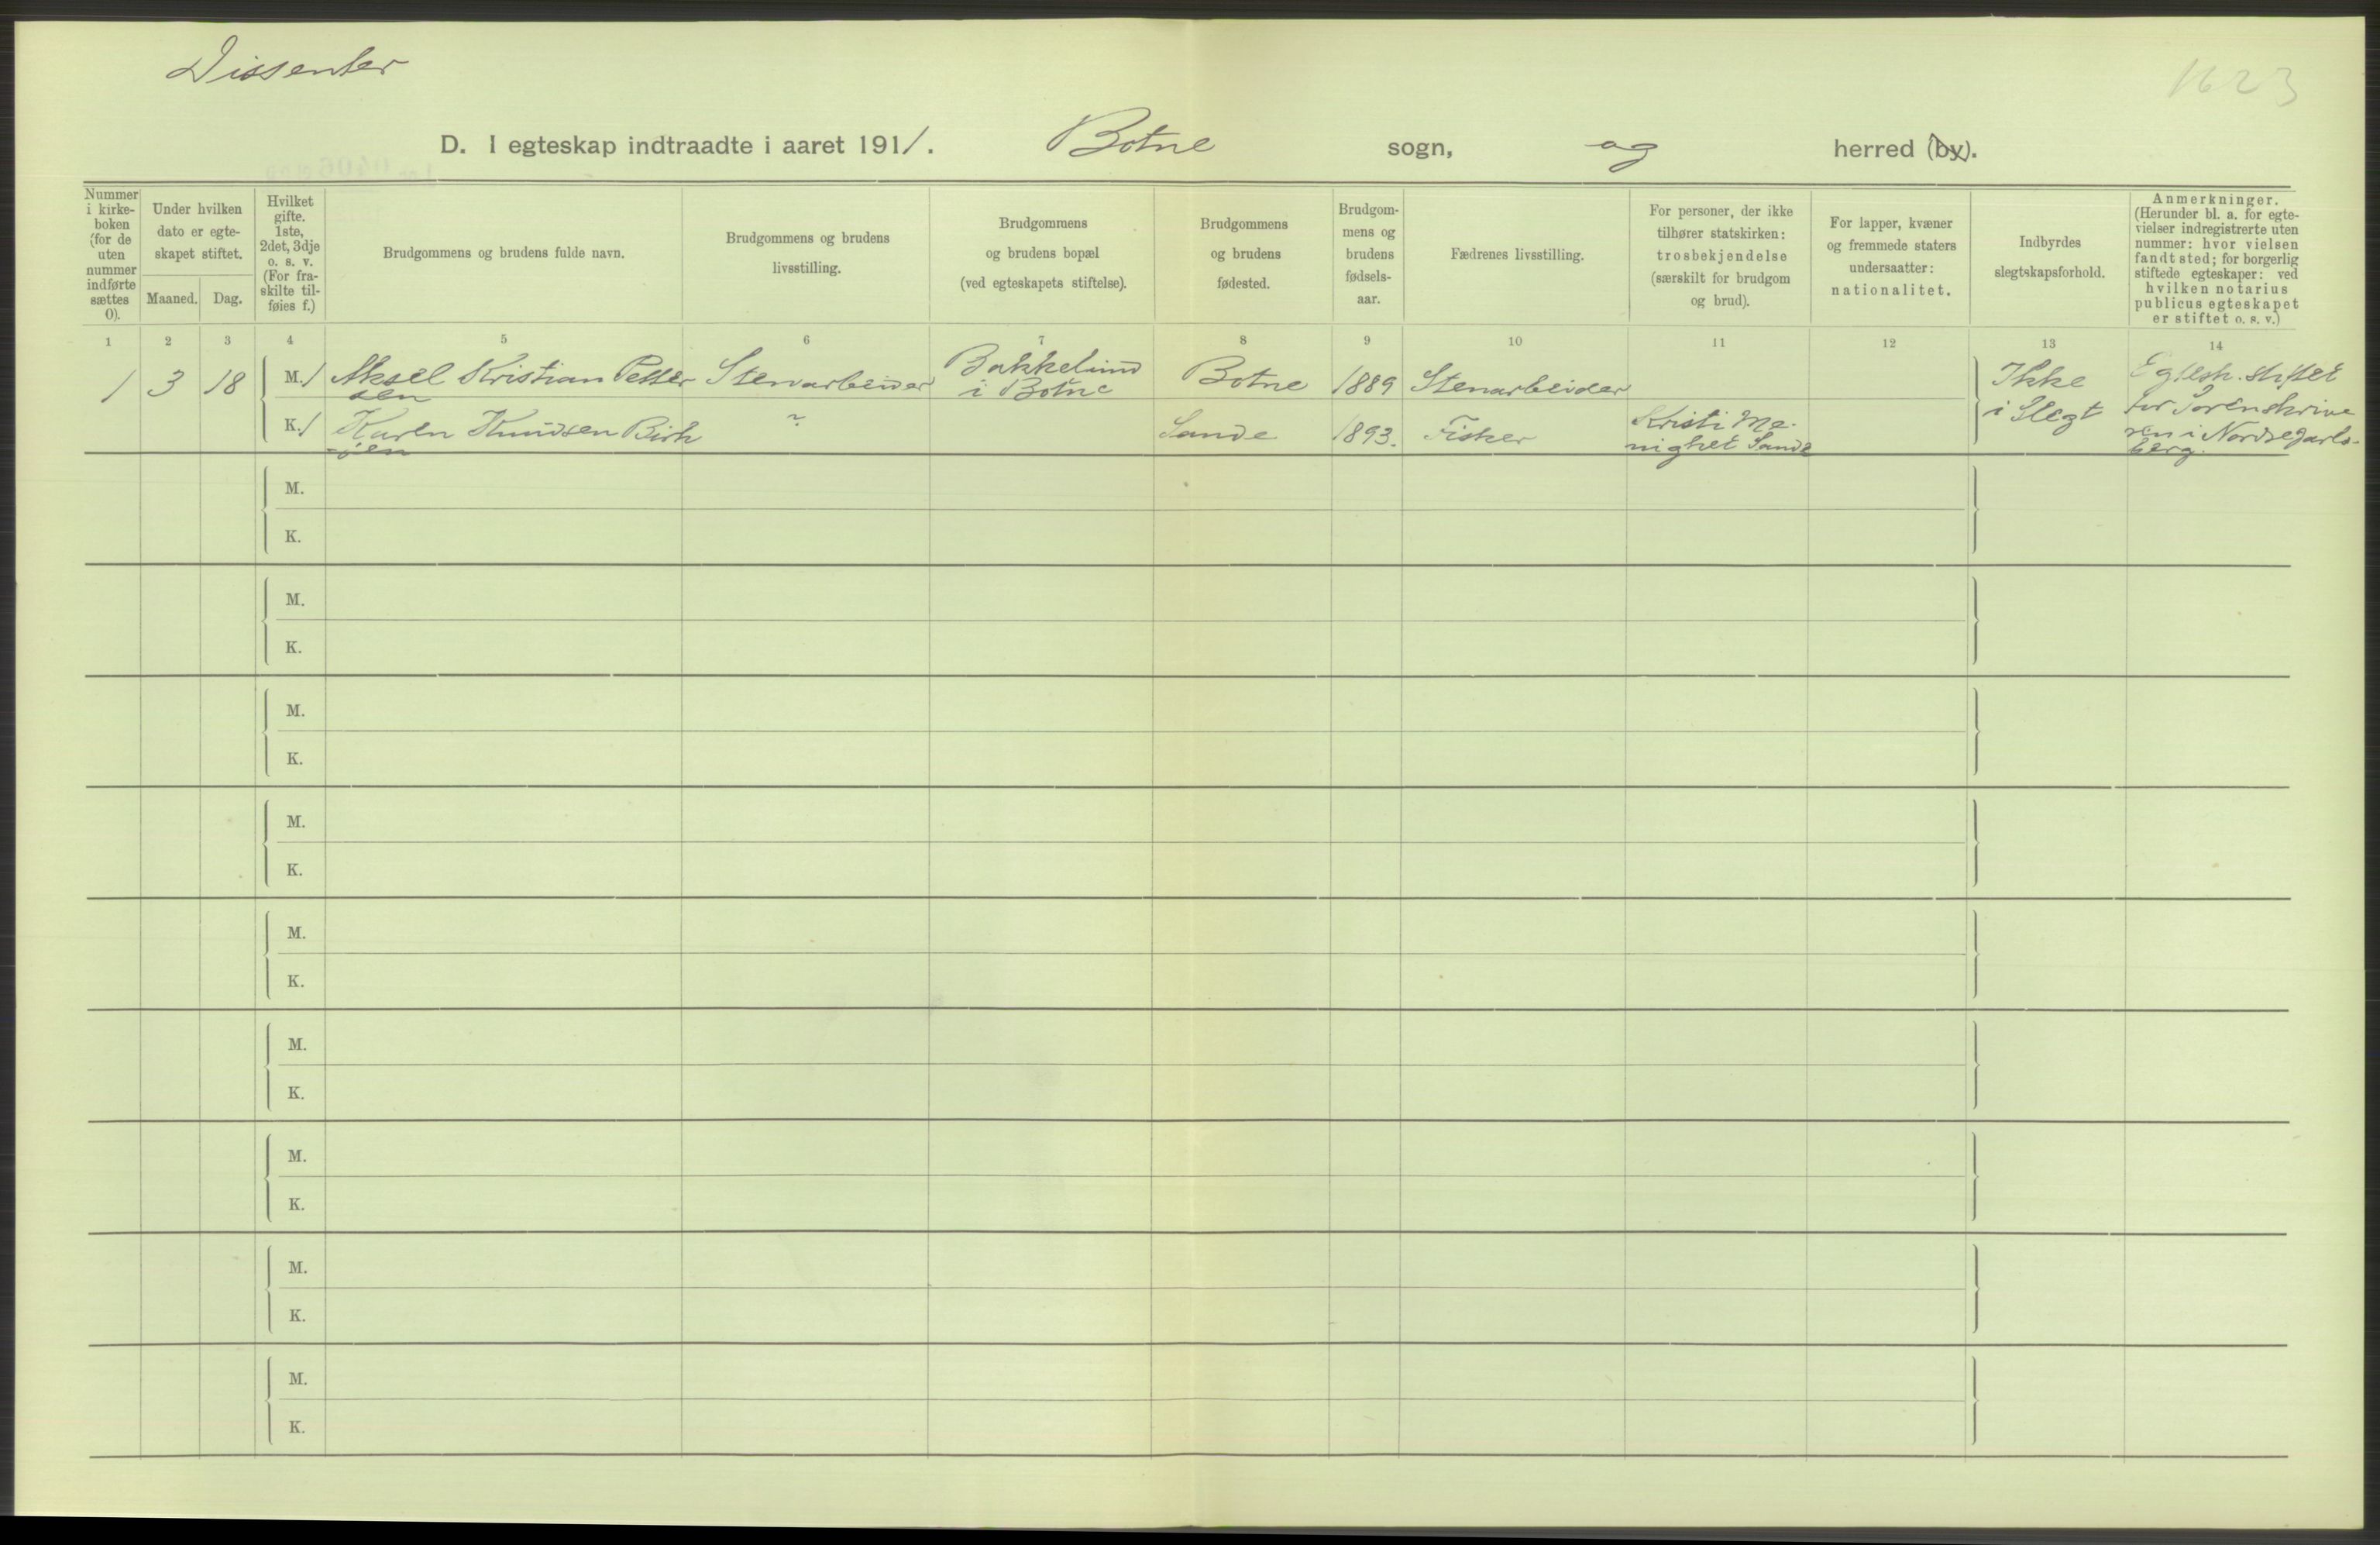 Dissenter
1623
D. I egteskap indtraadte i aaret 1911. Botne sogn, og herred (by).
Nummer i kirkeboken (for de uten nummer indførte sættes 0).
Under hvilken dato er egteskapet stiftet.
Maaned. Dag.
Hvilket gifte. 1ste, 2det, 3dje o. s. v. (For fraskilte tilføies f.)
Brudgommens og brudens fulde navn.
Brudgommens og brudens livsstilling.
Brudgommens og brudens bopæl (ved egteskapets stiftelse).
Brudgommens og brudens fødested.
Brudgommens og brudens fødselsaar.
Fædrenes livsstilling.
For personer, der ikke tilhører statskirken: trosbekjendelse (særskilt for brudgom og brud).
For lapper, kvæner og fremmede staters undersaatter: nationalitet.
Indbyrdes slegtskapsforhold.
Anmerkninger. (Herunder bl. a. for egtevielser indregistrerte uten nummer: hvor vielsen fandt sted; for borgerlig stiftede egteskaper: ved hvilken notarius publicus egteskapet er stiftet o. s. v.)
1 2 3 4 5 6 7 8 9 10 11 12 13 14
1 3 18 M. 1 Aksel Kristian Petter
sen
Stenarbeider
Bakkelund
i Botne
Botne 1889 Stenarbeider
Ikke
i Slegt
Egtesk. stiftet
for Sorenskrive
ren i Nordre Jarls-
berg.
K. 1 Karen Knudsen Birk
-øen
? Sande 1893. Fisker
Kristi Me-
nighet Sande
M.
K.
M.
K.
M.
K.
M.
K.
M.
K.
M.
K.
M.
K.
M.
K.
M.
K.